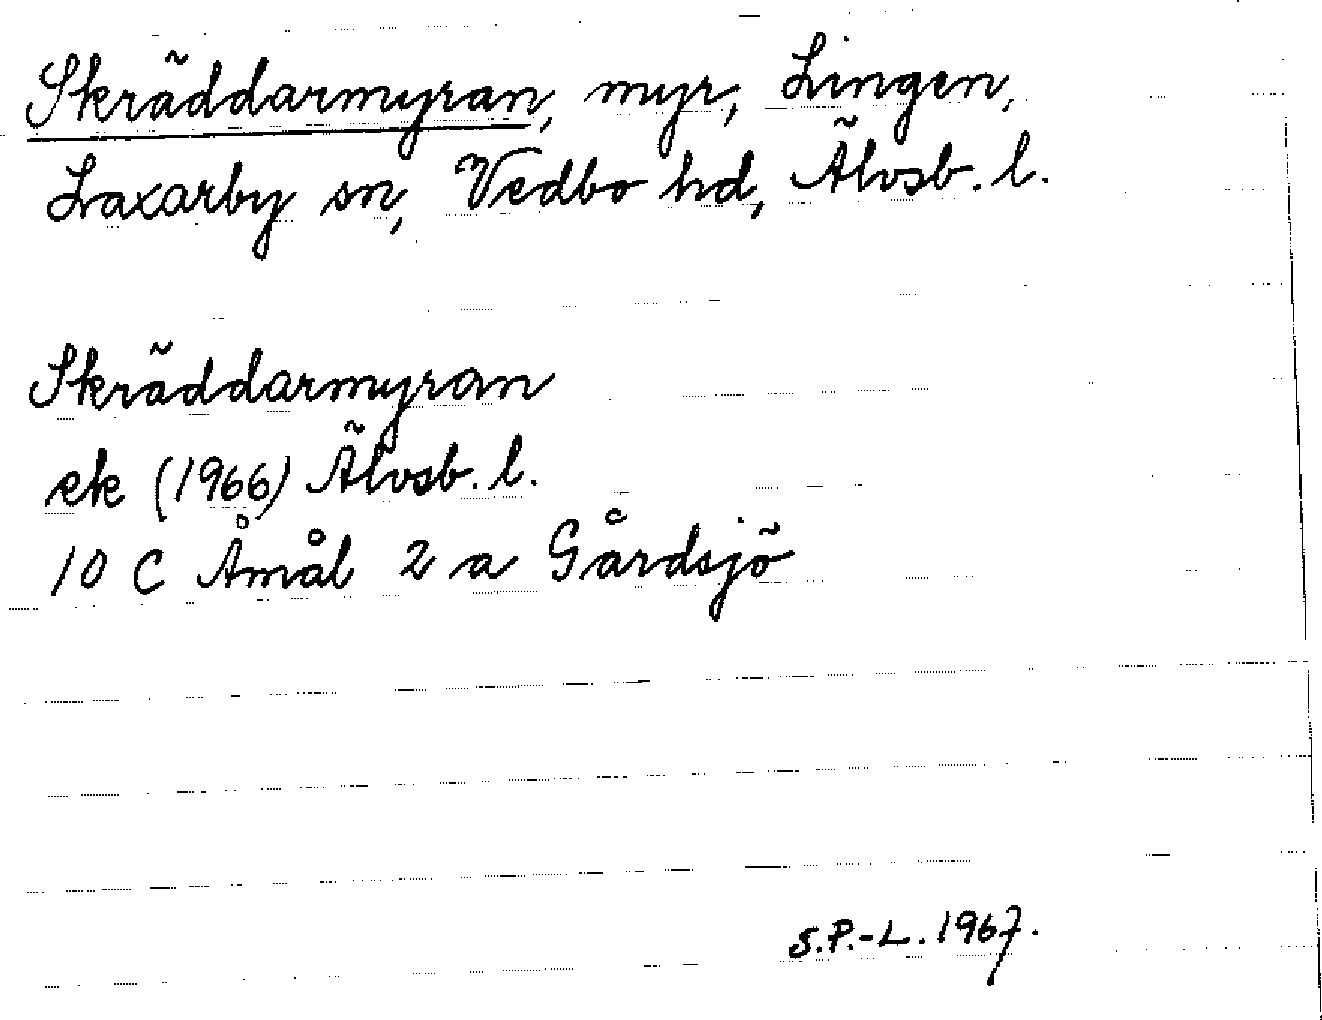 Skräddarmyran, myr, Lingen,
Laxarby sn, Vedbo hd, Älvsb. l.
Skräddarmyran
ek (1966) Älvsb. l.
10 C Åmål 2 a Gårdsjö
S.P.-L. 1967.